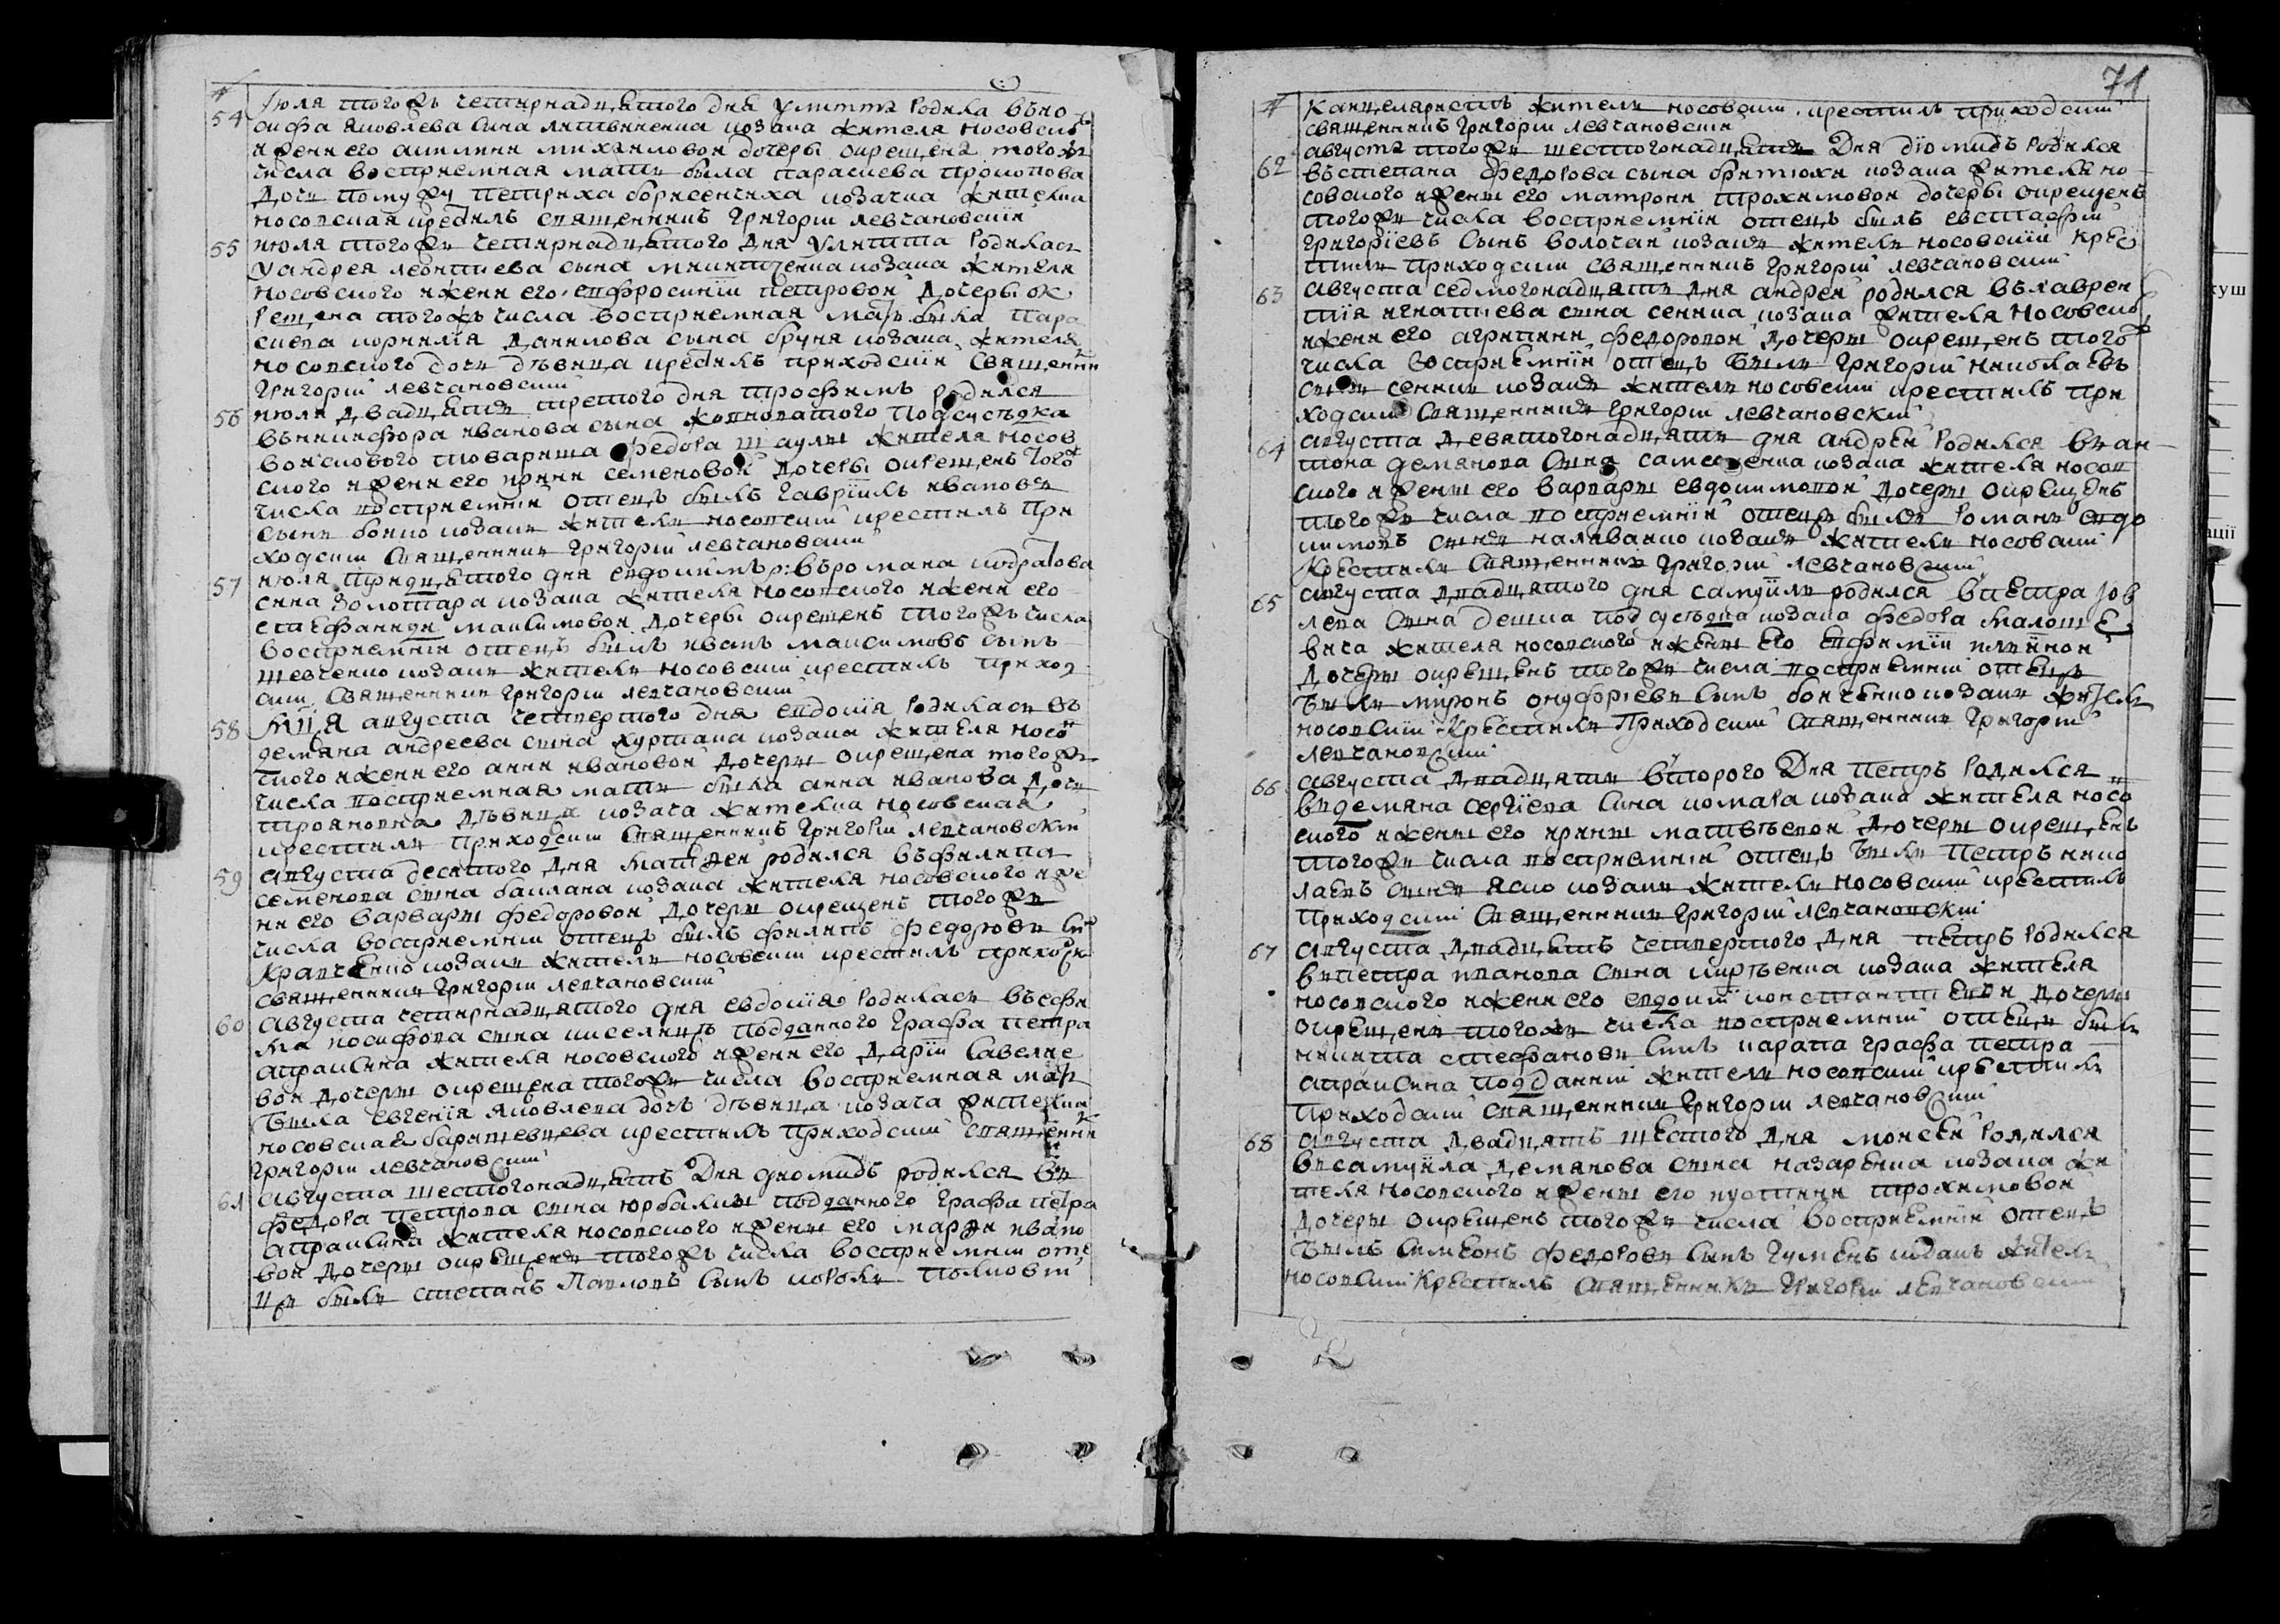 54 Июля тогожъ четирнадцятого дня Улитта родила въио
сифа Яковлева сина литвиненка козака жителя носовско
и жени его акилини михаиловои дочеры окрещена того жъ
числа восприемная мати была параскева прокопова
дочи по мужу петриха борисенчиха козачка жителка
носовская крестилъ священникъ григорiи левчановскiи
55 июля того жъ четирнадцятого дня улитта родилась
у андрея леонтиева сына микитченка козака жителя
носовского и жени его епфросинiи петровои дочеры ок
рещена того жъ числа восприемная мать была пара
скева корнилiя данилова сына бруя козака жителя
носовского дочь дѣвица крестилъ приходскiи священни
григорiи левчановскiи
56 июля двадцять третого дня трофимъ родился
въникифора иванова сына подсусѣдка
воискового товариша федора шаулы жителя носов
ского и жени его ирини семеновои дочеры окрещенъ того
числа восприемнiи отецъ былъ гаврiилъ ивановъ
сынъ бокко козакъ житель носовскiи крестилъ при
ходскiи священникъ григорiи левчановскiи
57 июля тридцятого дня евдокимъ р: въ романа кодратова
сина золотара козака жителя носовского и жени его
стефаниди максимовои дочеры окрещенъ того жъ числа
восприемнiи отецъ былъ иванъ максимовъ сынъ
шевченко козакъ житель носовскiи крестилъ приход
скiи священникъ григорiи левчановскiи
58 Мця августа четвертого дня евдокiя родилась въ
демяна андреева сына хуртака козака жителя носо
вского и жени его анни ивановои дочеры окрещена того жъ
числа восприемная мати была анна иванова дочь
трояновна дѣвица козача жителка носовская
крестилъ приходскiи священникъ григорiи левчановскiи
59 августа десятого дня матфеи родился въ филипа
семенова сына баклана козака жителя носовского и же
ни его варвары федоровои дочеры окрещенъ того жъ
числа восприемнiи отецъ былъ филипъ федоровъ сы
кравченко козакъ житель носовскiи крестилъ приходск
священникъ григорiи левчановскiи
60 августа четирнадцятого дня евдокiя родилась въ ефи
ма иосифова сына киселицѣ подданного графа петра
апраксина жителя носовского и жени его дарiи савелие
вои дочеры окрещена того жъ числа восприемная мать
была евгенiя яковлева дочь дѣвица козача жителка
носовская баришевцева крестилъ приходскiи священни
григорiи левчановскiи
61 августа шестогонадцять дня диомидъ родился въ
федора петрова сына юрбалки подданного графа петра
апраксина жителя носовского и жены его марфи ивано
вои дочеры окрещенъ того жъ числа восприемнiи оте
цъ былъ степанъ Павловъ сынъ королъ полковiи
71
канцеляристъ житель носовскiи крестилъ приходскiи
священникъ григорiи левчановскiи
62 августа того жъ шестогонадцять дня дiомидъ родился
въ степана федорова сына битюхи козака жителя но
совского и жени его матрони трохимовои дочеры окрещенъ
того жъ числа восприемнiи отецъ былъ евстафiи
григорiевъ сынъ волочаи козакъ житель носовскiи крес
тилъ приходскiи священникъ григорiи левчановскiи
63 августа седмогонадцять дня андреи родился въ лаврен
тiя игнатиева сына сеника козака жителя носовско
и жени его агрипини федоровои дочеры окрещенъ того
числа восприемнiи отецъ былъ григорiи николаевъ
сынъ сеникъ козакъ житель носовскiи крестилъ при
ходскiи священникъ григорiи левчановскiи
64 августа девятогонадцять дня андреи родился въ ан
тона демянова сына козака жителя носов
ского и жены его варвары евдокимовои дочеры окрещенъ
того жъ числа восприемнiи отецъ былъ романъ евдо
кимовъ сынъ наливаико козакъ житель носовскiи
крестилъ священникъ григорiи левчановскiи
65 августа двадцятого дня самуилъ родился въ петра Iов
лева сына дешка подсусѣдка козака федора малоше
вича жителя носовского и жены его евфимiи илiинои
дочеры окрещенъ того жъ числа восприемнiи отецъ
былъ миронъ онуфрiевъ сынъ боиченко козакъ житель
носовскiи крестилъ приходскiи священникъ григорiи
левчановскiи
66 августа двадцять второго дня петръ родился
въ демяна сергiева сина комара козака жителя носо
ского и жены его ирины матвѣевои дочеры окрещенъ
того жъ числа восприемнiи отецъ былъ петръ нико
лаевъ сынъ яско козакъ житель носовскiи крестилъ
приходскiи священникъ григорiи левчановскiи
67 августа двадцять четвертого дня петръ родился
въ петра иванова сына кирѣенка козака жителя
носовского и жени его евдокiи константиевои дочеры
окрещенъ того жъ числа восприемнiи отецъ былъ
никита стефановъ сынъ карапа графа петра
апраксина подданнiи житель носовскiи крестилъ
приходскiи священникъ григорiи левчановскiи
68 августа двадцять шестого дня моисеи родился
въ самуила демянова сына назаренка козака жи
теля носовского и жены его иустини трохимовои
дочеры окрещенъ того жъ числа восприемнiи отецъ
былъ симеонъ федоровъ сынъ гуменъ козакъ житель
носовскiи крестилъ священникъ григорiи левчановскiи